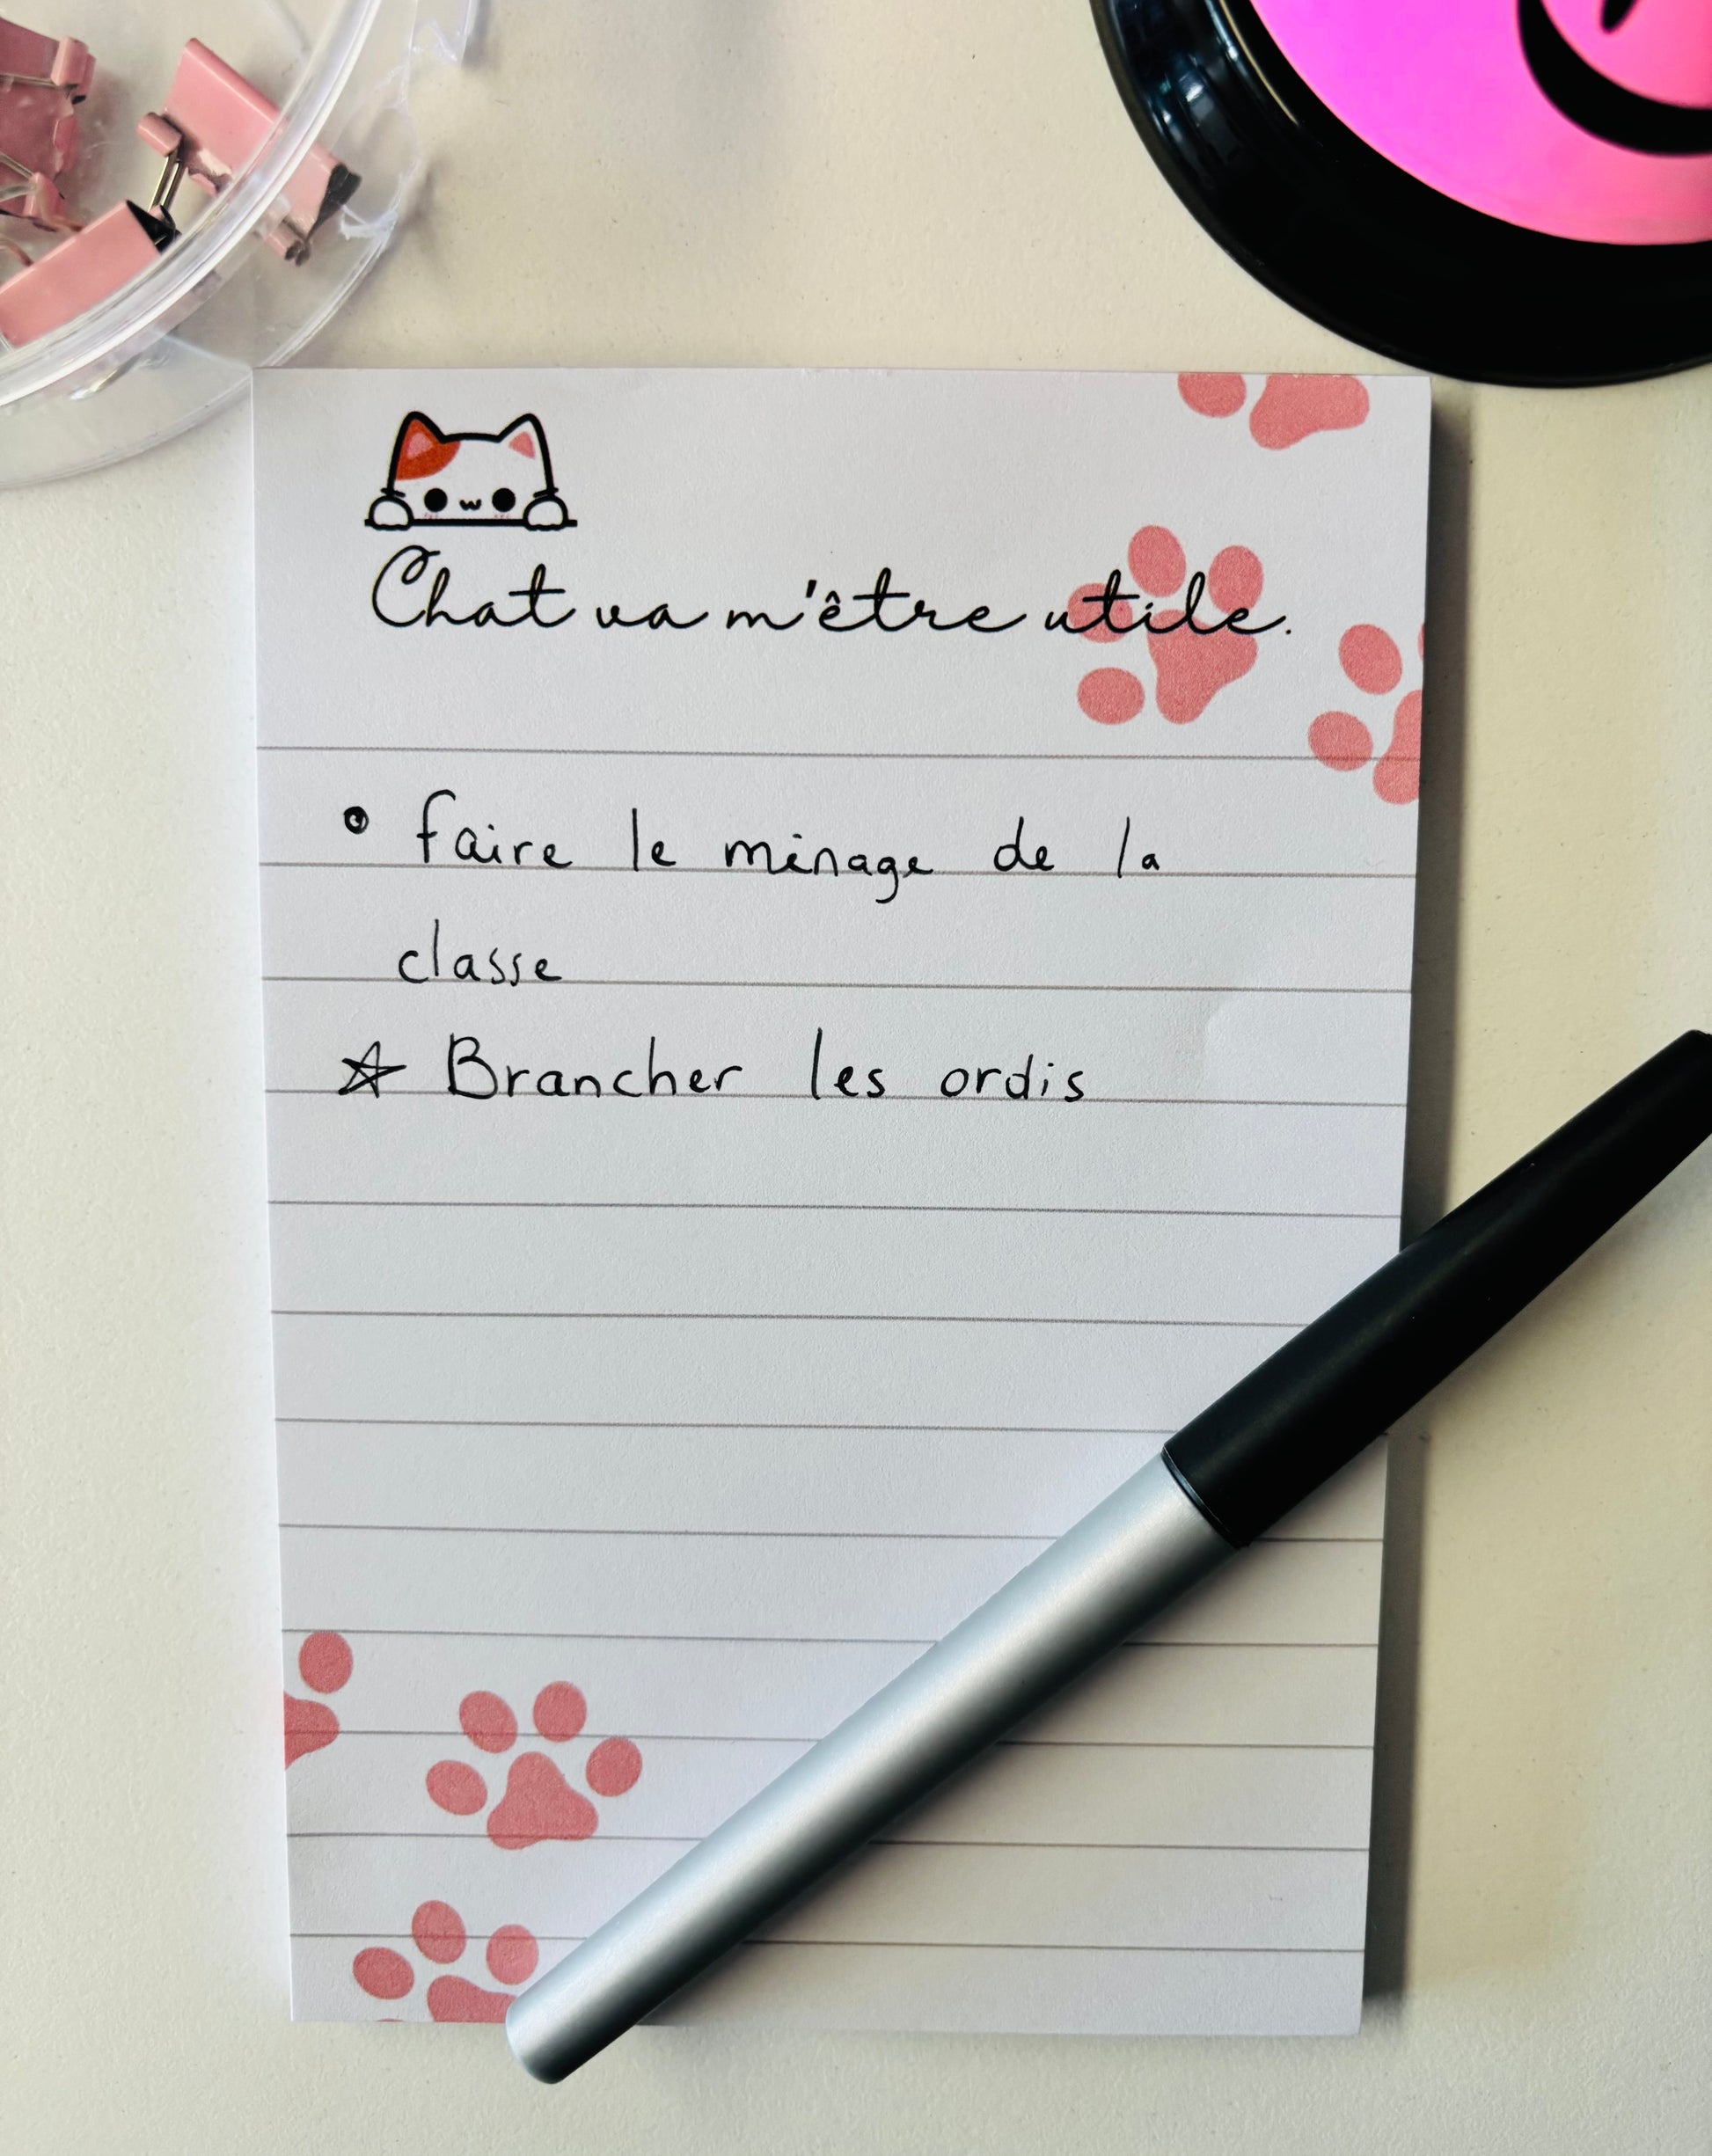 Chat va m'être utile.
• faire le ménage de la
classe
☆ Brancher les ordis